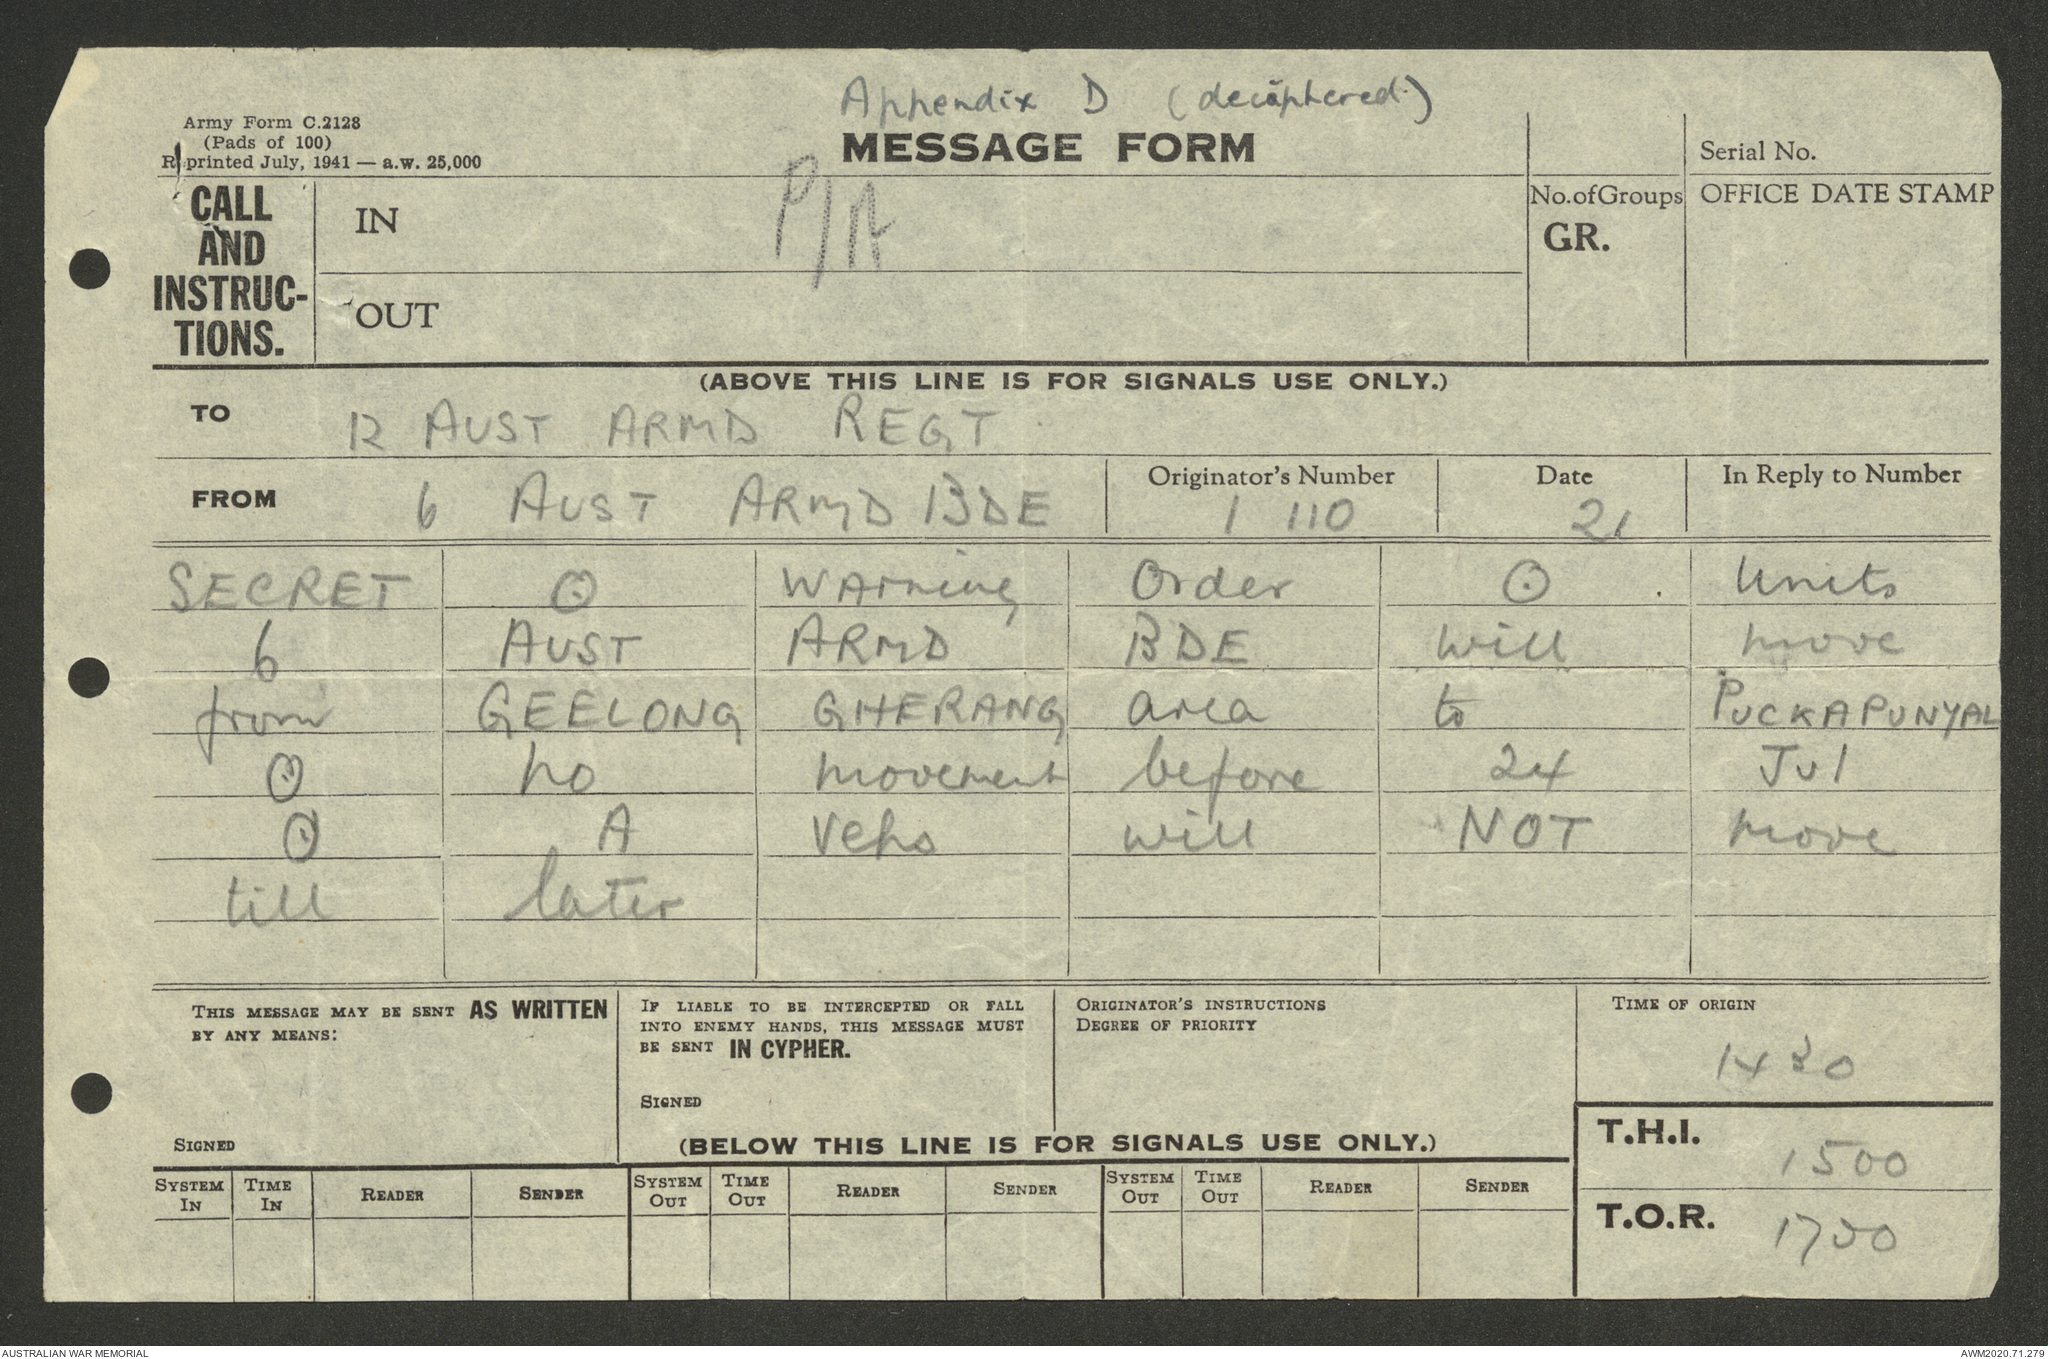 Appendix D (deciphered)
Army Form C.2128
(Pads of 100)
Reprinted July, 1941 — a.w. 25,000
MESSAGE FORM
Serial No.
CALL AND INSTRUC-TIONS.
IN
P/A
No. of Groups
GR.
OFFICE DATE STAMP
OUT
(ABOVE THIS LINE IS FOR SIGNALS USE ONLY.)
TO 12 AUST ARMD REGT
FROM 6 AUST ARMD BDE Originator's Number 1 110 Date 21 In Reply to Number
SECRET ⊙ Warning Order ⊙ Units
6 AUST ARMD BDE will move
from GEELONG GHERANG area to PUCKAPUNYAL
⊙ no movement before 24 Jul
⊙ A Vehs will NOT move
till later
THIS MESSAGE MAY BE SENT AS WRITTEN
BY ANY MEANS:
SIGNED
IF LIABLE TO BE INTERCEPTED OR FALL
INTO ENEMY HANDS, THIS MESSAGE MUST
BE SENT IN CYPHER.
SIGNED
ORIGINATOR'S INSTRUCTIONS
DEGREE OF PRIORITY
TIME OF ORIGIN
1430
(BELOW THIS LINE IS FOR SIGNALS USE ONLY.)
T.H.I. 1500
T.O.R.
SYSTEM IN TIME IN READER SENDER SYSTEM OUT TIME OUT READER SENDER SYSTEM OUT TIME OUT READER SENDER
AUSTRALIAN WAR MEMORIAL
AWM2020.71.279